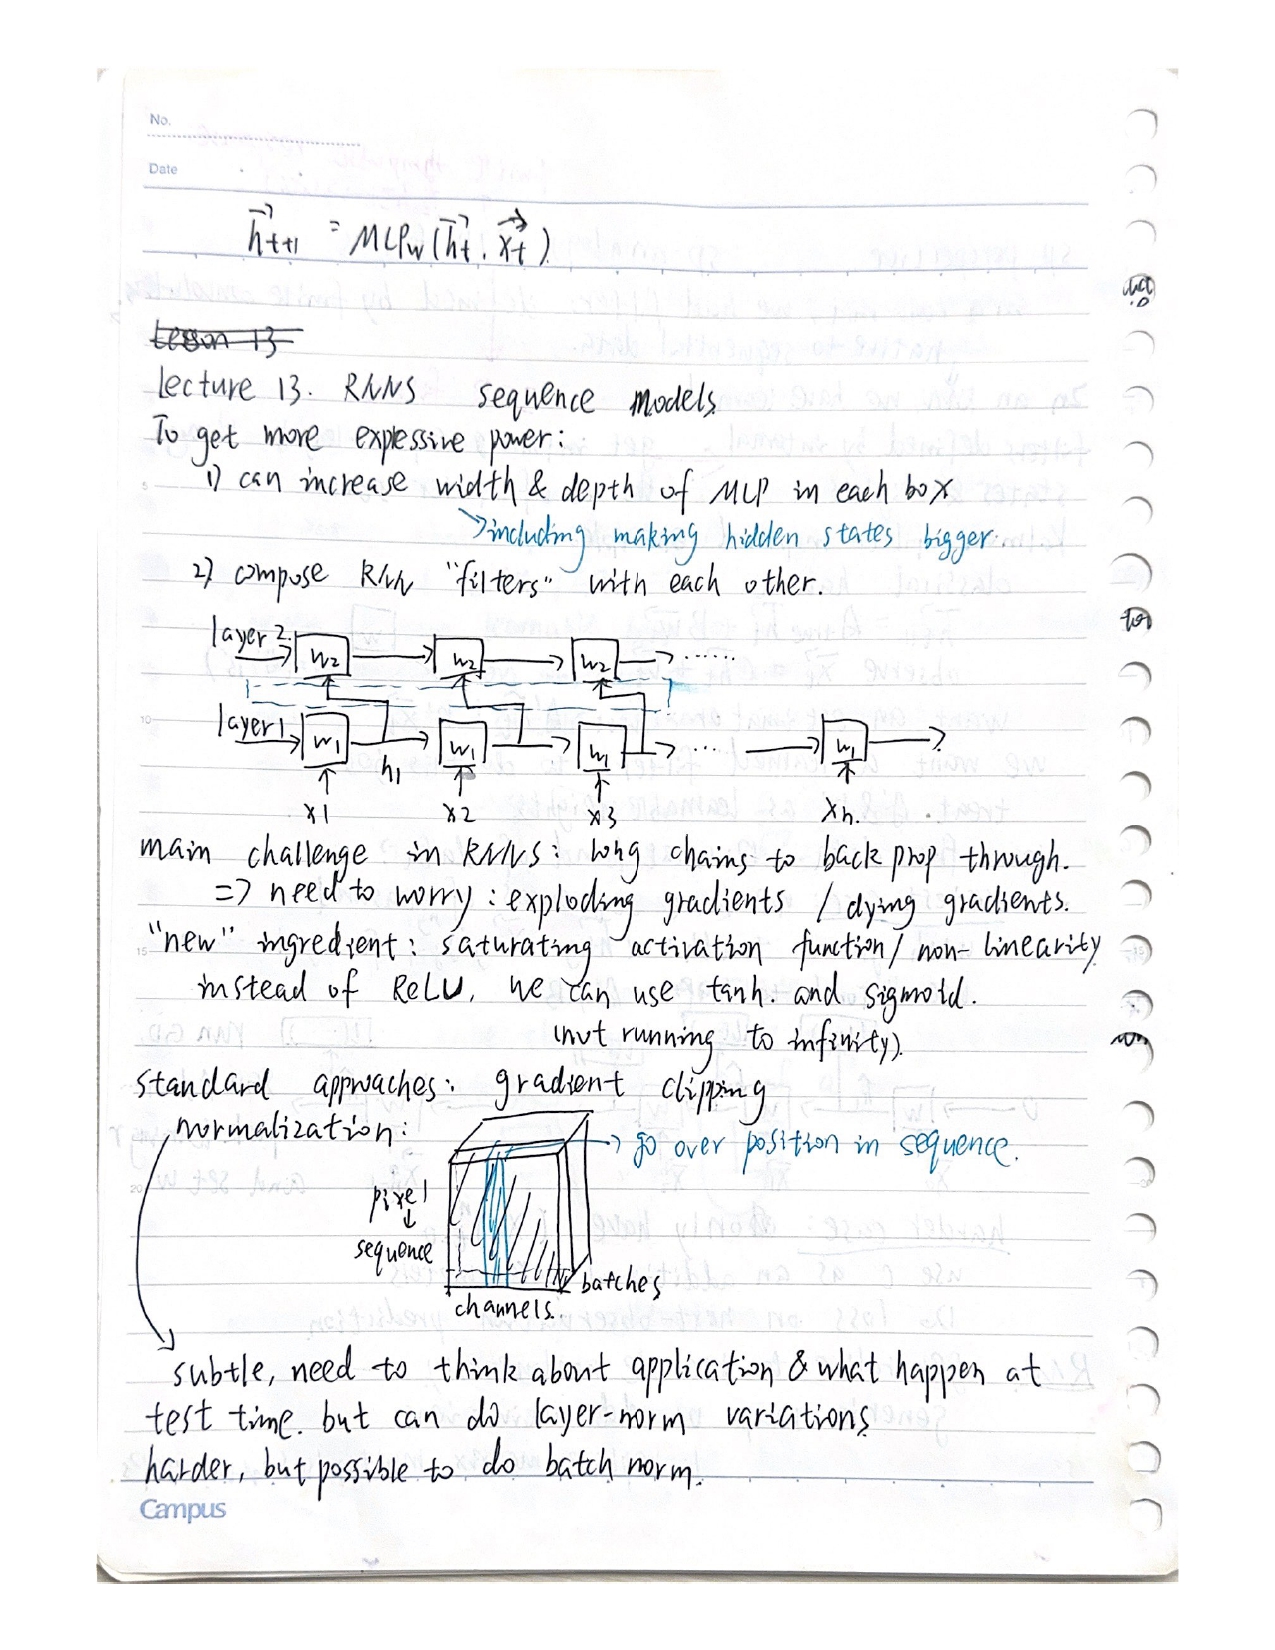 No.
Date
h⃗t+1 = MLPw(h⃗t, x⃗t)
Lesson 13
lecture 13. RNNS sequence models
To get more explessive power:
1) can increase width & depth of MLP in each box
including making hidden states bigger.
2) compose RNN "filters" with each other.
layer 2
w2 w2 w2 ......
layer 1
w1 w1 w1 ... w1
h1
x1 x2 x3 xn.
main challenge in RNNS: long chains to back prop through.
=> need to worry: exploding gradients / dying gradients.
"new" ingredient: saturating activation function / non-linearity
instead of ReLU, we can use tanh. and sigmoid.
(not running to infinity).
standard approaches: gradient clipping
normalization:
go over position in sequence.
pixel
↓
sequence
batches
channels.
subtle, need to think about application & what happen at
test time. but can do layer-norm variations
harder, but possible to do batch norm.
Campus